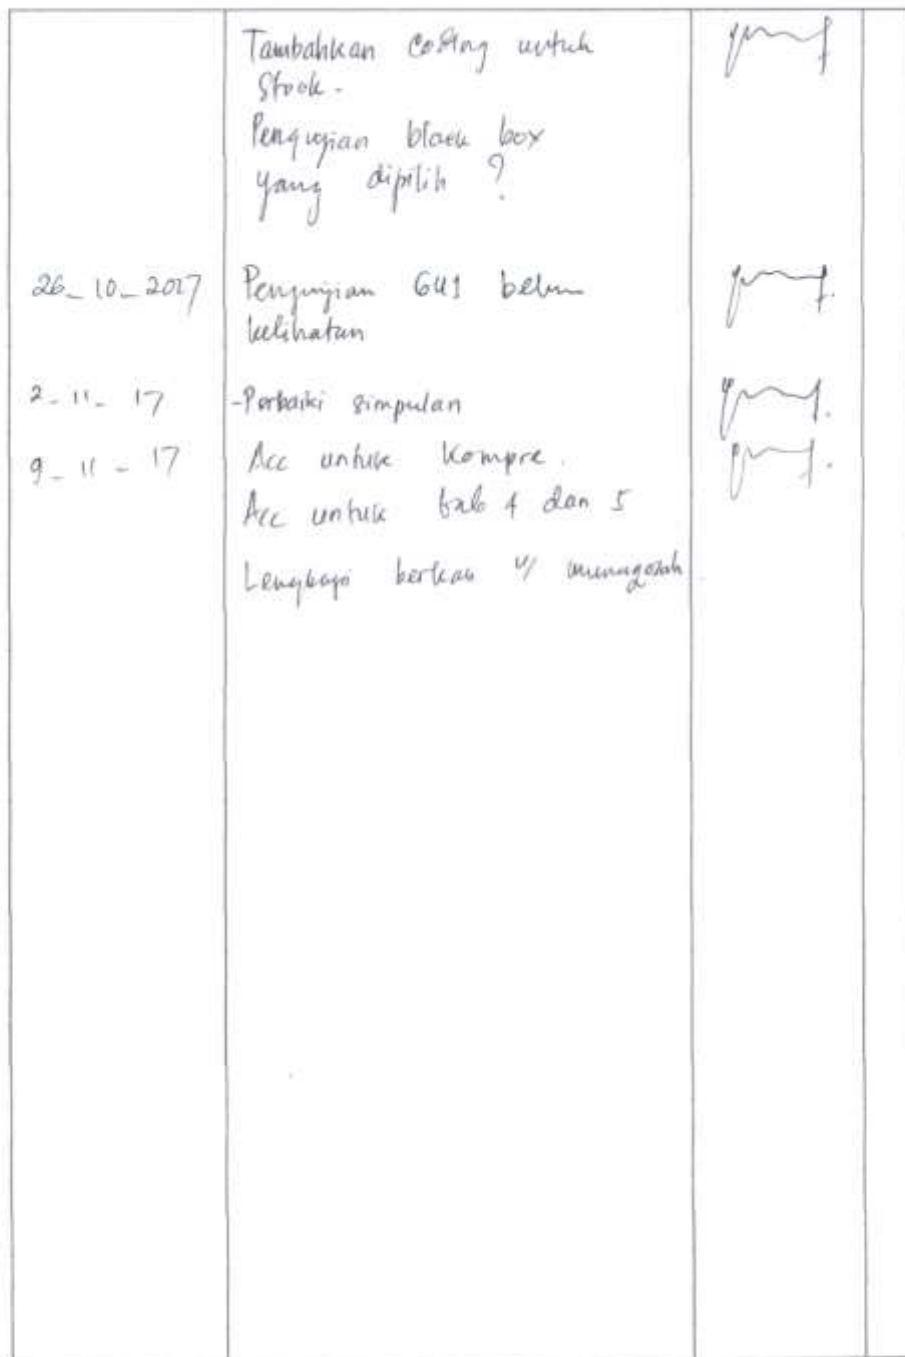 Tambahkan Coding untuk
Stock.
Pengujian black box
yang dipilih ?
26-10-2017 Pengujian GUI belum
kelihatan
2-11-17 -Perbaiki simpulan
9-11-17 Acc untuk Kompre.
Acc untuk bab 4 dan 5
Lengkapi berkas u/